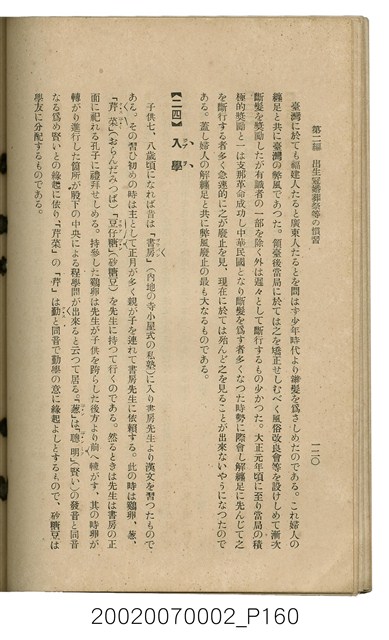 第二編 出生冠婚葬祭等の慣習
一二〇
臺灣に於ても福建人たると廣東人たるとを問はず少年時代より辮髮を爲さしめたのである。これ婦人の
纏足と共に臺灣の弊風であつた。領臺後當局に於ては之を矯正せしむべく風俗改良會等を設けしめて漸次
斷髮を奬勵したが有識者の一部を除く外は遲々として斷行するもの少かつた。大正元年頃に至り當局の積
極的奬勵と一は支那革命成功し中華民國となり斷髮を爲す者多くなつた時勢に際會し解纏足に先んじて之
を斷行する者多く急速的に之が廢止を見、現在に於ては殆んど之を見ることが出來ないやうになつたので
ある。蓋し婦人の解纏足と共に弊風廢止の最も大なるものである。
【二四】 入學
子供七、八歲頃になれば昔は「書房」(內地の寺小屋式の私塾)に入り書房先生より漢文を習つたもので
ある。その習ひ初めの時は主として正月が多く親が子を連れて書房先生に依賴する。此の時は鷄卵、葱、
「芹菜」(おらんだみつば)「豆仔糖」(砂糖豆)を先生に持つて行くのである。然るときは先生は書房の正
面に祀れる孔子に禮拜せしめる。持參した鷄卵は先生が子供を跨らした後方より前へ轉がす、其の時卵が
轉がり進行した箇所が股下の中央による程學問が出來ると云つて居る。「葱」は「聰明」(賢い)の發音と同音
なる爲め賢いとの緣起に依り「芹菜」の「芹」は勤と同音で勤學の意に緣起よしとするもので、砂糖豆は
學友に分配するものである。
20020070002_P160